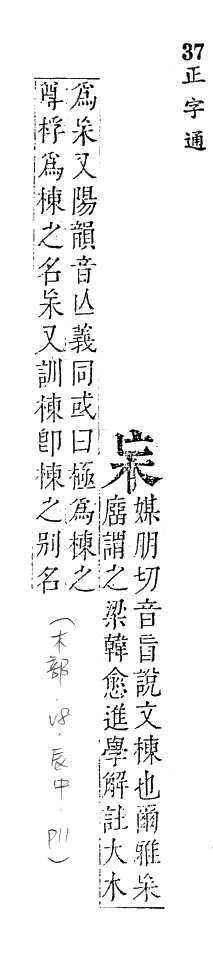 37
正字通
杗
媒朋切音盲說文棟也爾雅杗
廇謂之梁韓愈進學解註大木
爲杗又陽韻音亾義同或曰極爲棟之
尊桴爲棟之名杗又訓棟卽棟之别名
(木部.v8.辰中.p11)